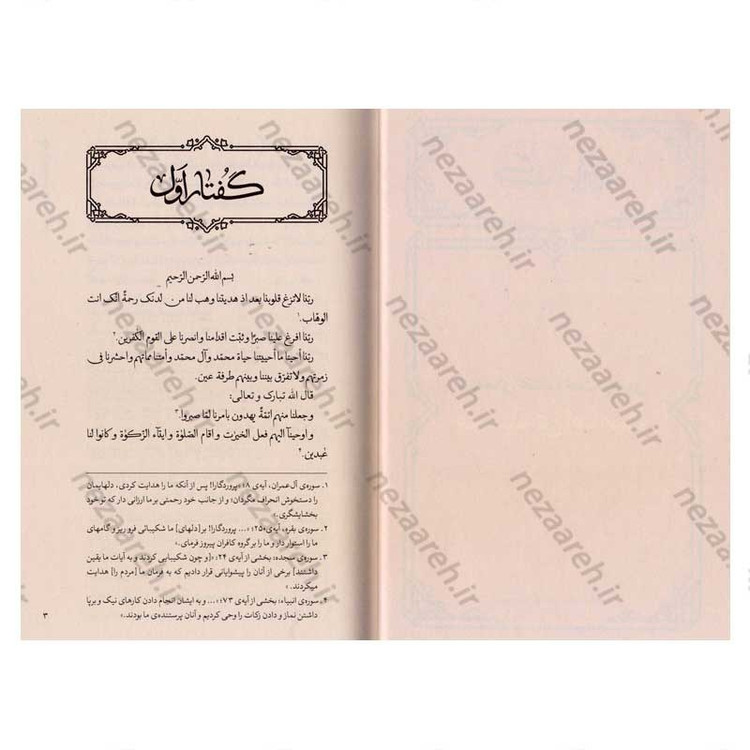 گفتار اوّل
بسم الله الرّحمن الرّحیم
ربّنا لاتزغ قلوبنا بعد اذ هدیتنا وهب لنا من لدنک رحمةً انّک انت
الوهّاب.۱
ربّنا افرغ علینا صبرًا وثبّت اقدامنا وانصرنا علی القوم الکٰفرین.۲
ربّنا أحینا ما أحییتنا حیاة محمّد وآل محمّد وأمتنا مماتهم واحشرنا فی
زمرتهم ولاتفرّق بیننا وبینهم طرفة عین.
قال الله تبارک و تعالی:
وجعلنا منهم ائمّةً یهدون بامرنا لمّا صبروا.۳
و اوحینآ الیهم فعل الخیرٰت و اقام الصّلوٰة و ایتآء الزّکوٰة و کانوا لنا
عٰبدین.۴
۱. سوره‌ی آل عمران، آیه‌ی ۸: «پروردگارا! پس از آنکه ما را هدایت کردی، دلهایمان
را دستخوش انحراف مگردان؛ و از جانب خود رحمتی بر ما ارزانی دار که تو خود
بخشایشگری.»
۲. سوره‌ی بقره، آیه‌ی ۲۵۰: «... پروردگارا! بر [دلهای] ما شکیبائی فرو ریز و گامهای
ما را استوار دار و ما را بر گروه کافران پیروز فرمای.»
۳. سوره‌ی سجده، بخشی از آیه‌ی ۲۴: «[و چون شکیبایی کردند و به آیات ما یقین
داشتند] برخی از آنان را پیشوایانی قرار دادیم که به فرمان ما [مردم را] هدایت
میکردند.»
۴. سوره‌ی انبیاء، بخشی از آیه‌ی ۷۳: «... و به ایشان انجام دادن کارهای نیک و برپا
داشتن نماز و دادن زکات را وحی کردیم و آنان پرستنده‌ی ما بودند.»
۳
nezaareh.ir
nezaareh.ir
nezaareh.ir
nezaareh.ir
nezaareh.ir
nezaareh.ir
nezaareh.ir
nezaareh.ir